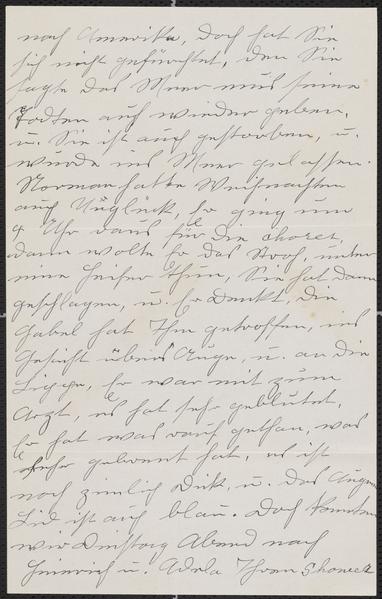 nach Amerika, doch hat Sie
sich nicht gefürchtet, den Sie
sagte das Meer mus seine
Todten auch wieder geben,
u. Sie ist auch gestorben, u.
wurde ins Meer gelassen.
Norman hatte Weihnachten
auch Unglück, Er ging um
4 Uhr raus für die chores,
dann wolte Er das Stroh, unter
eine Heifer thun, Sie hat dann
geschlagen, u. Er denkt, die
Gabel hat Ihm getroffen, ins
Gesicht übers Auge, u. an die
Lippe, Er war mit zum
Arzt, es hat sehr geblutet,
Er hat was rauf gethan, was
sehr gebrent hat, es ist
noch zimlich dick, u. das Augen
Lid ist auch blau. Doch konnten
wir Dinstag Abend nach
Heinrich u. Adela Ihren Shower